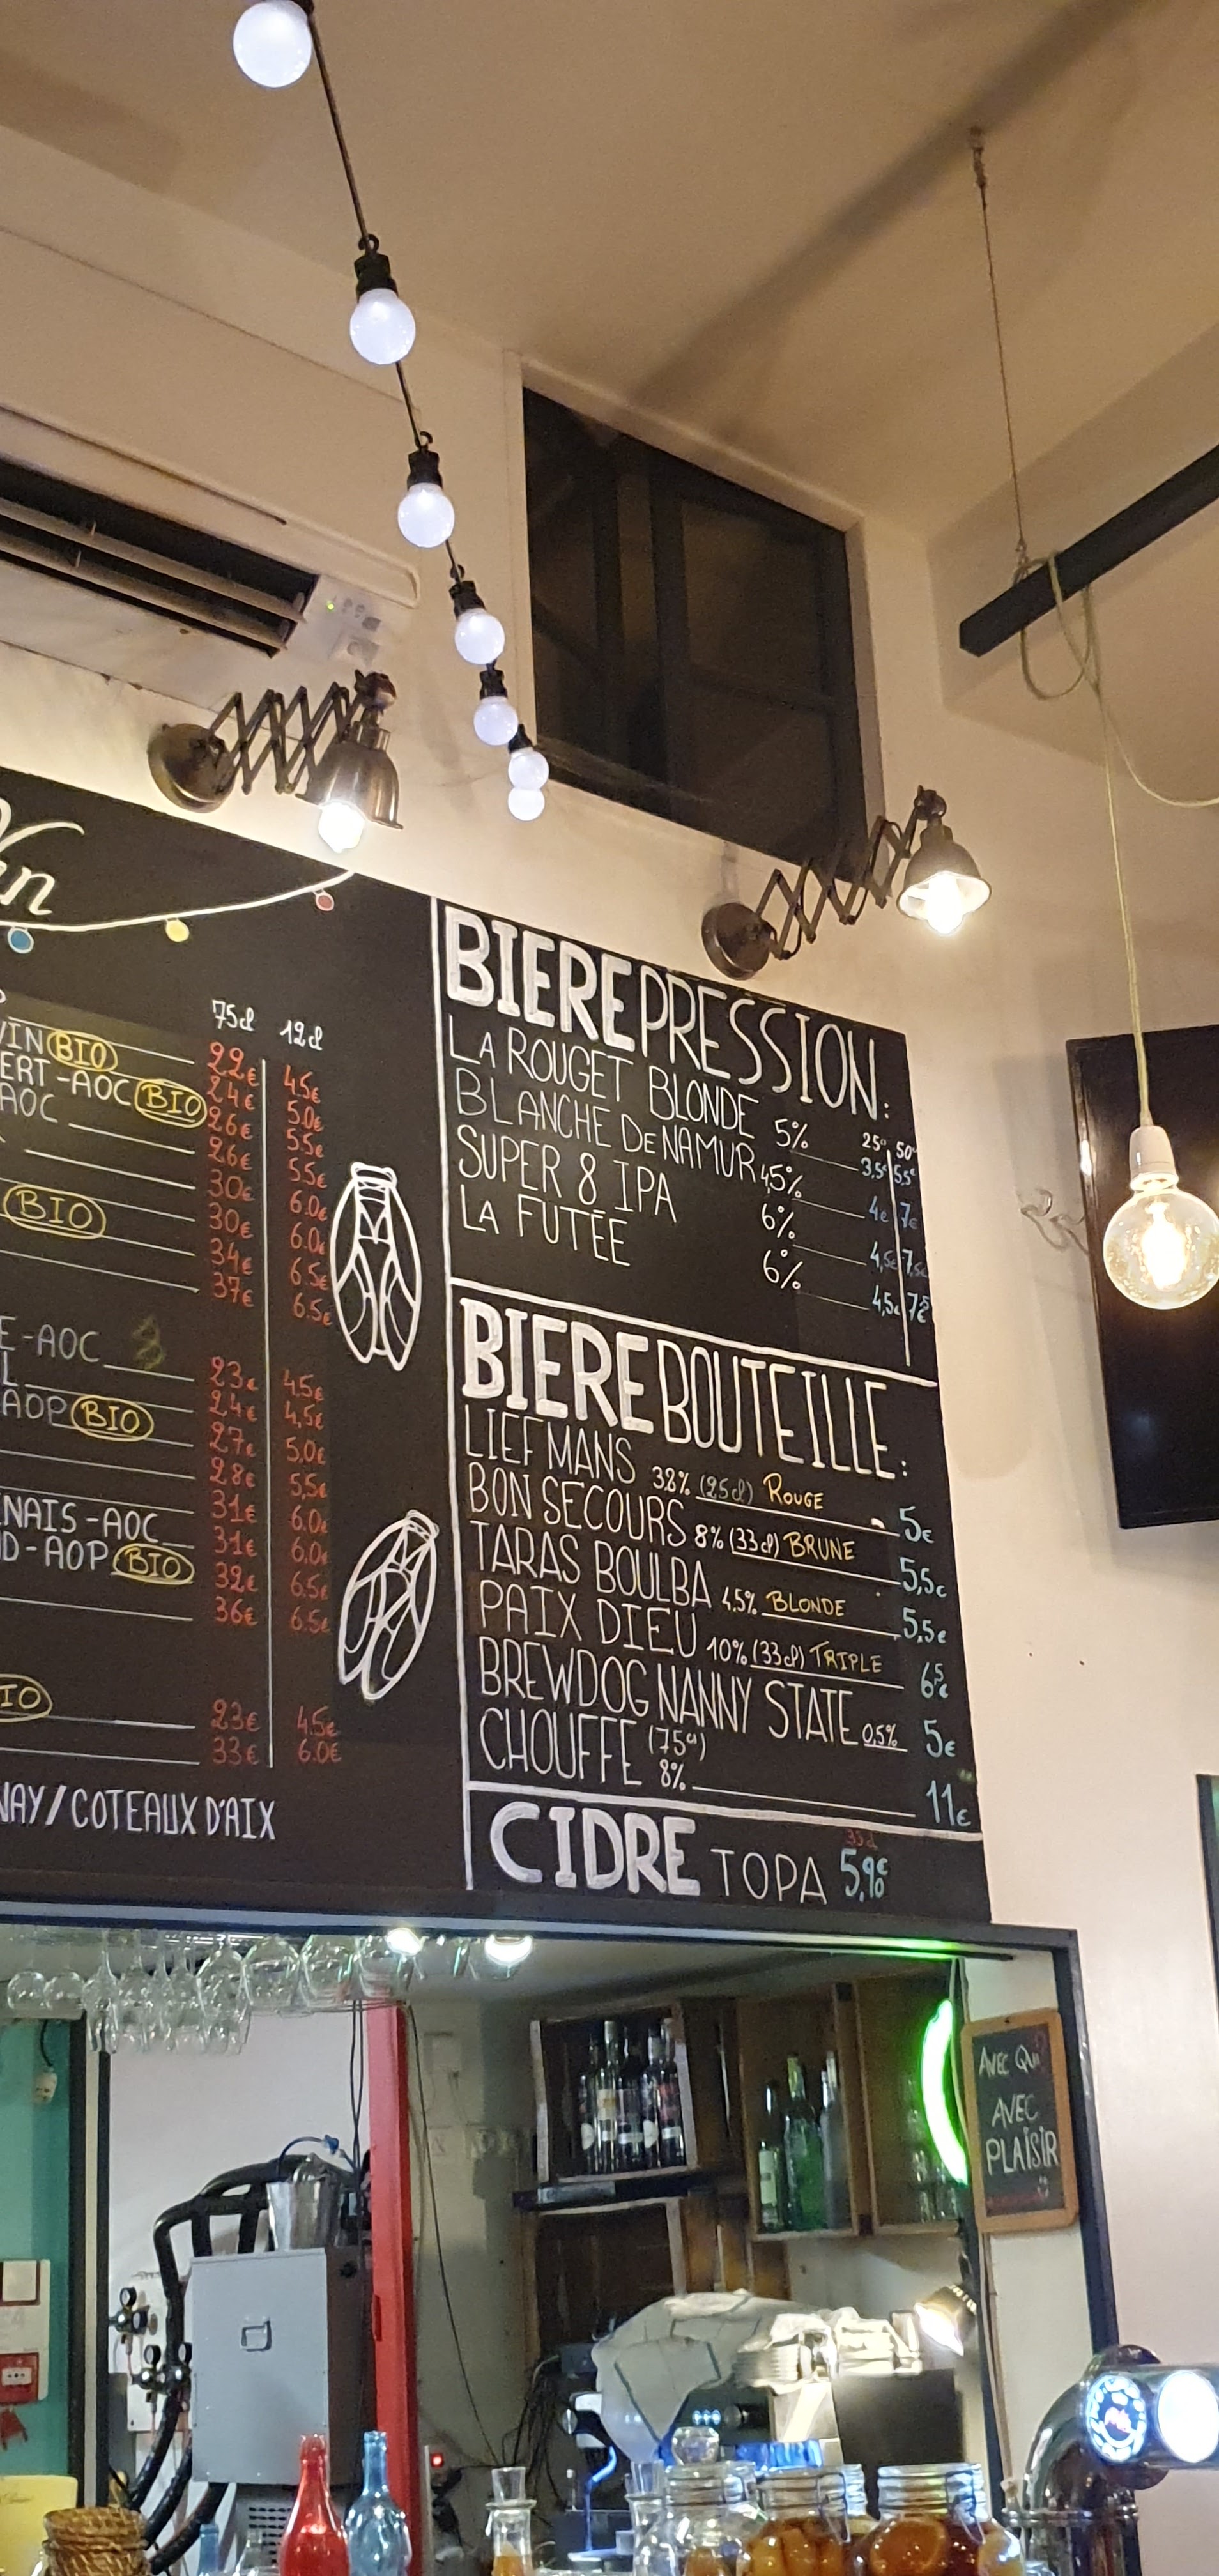 75cl 12cl
VIN BIO 22€ 4.5€
ERT-AOC BIO 24€ 5.0€
AOC 26€ 5.5€
26€ 5.5€
30€ 6.0€
BIO 30€ 6.0€
34€ 6.5€
37€ 6.5€
E-AOC
L 23€ 4.5€
AOP BIO 24€ 4,5€
27€ 5.0€
28€ 5.5€
NAIS-AOC 31€ 6.0€
D-AOP BIO 31€ 6.0€
32€ 6.5€
36€ 6.5€
IO
23€ 4.5€
33€ 6.0€
NAY/COTEAUX D'AIX
BIERE PRESSION:
25cl 50cl
LA ROUGET BLONDE 5% 3,5€ 5,5€
BLANCHE DE NAMUR 4,5% 4€ 7€
SUPER 8 IPA 6% 4,5€ 7,5€
LA FUTÉE 6% 4,5€ 7,5€
BIERE BOUTEILLE:
LIEFMANS 3.8% (25cl) ROUGE 5€
BON SECOURS 8% (33cl) BRUNE 5,5€
TARAS BOULBA 4,5% BLONDE 5,5€
PAIX DIEU 10% (33cl) TRIPLE 6,5€
BREWDOG NANNY STATE 0,5% 5€
CHOUFFE (75cl) 8% 11€
33cl
CIDRE TOPA 5,90€
AVEC QUI
AVEC
PLAISIR